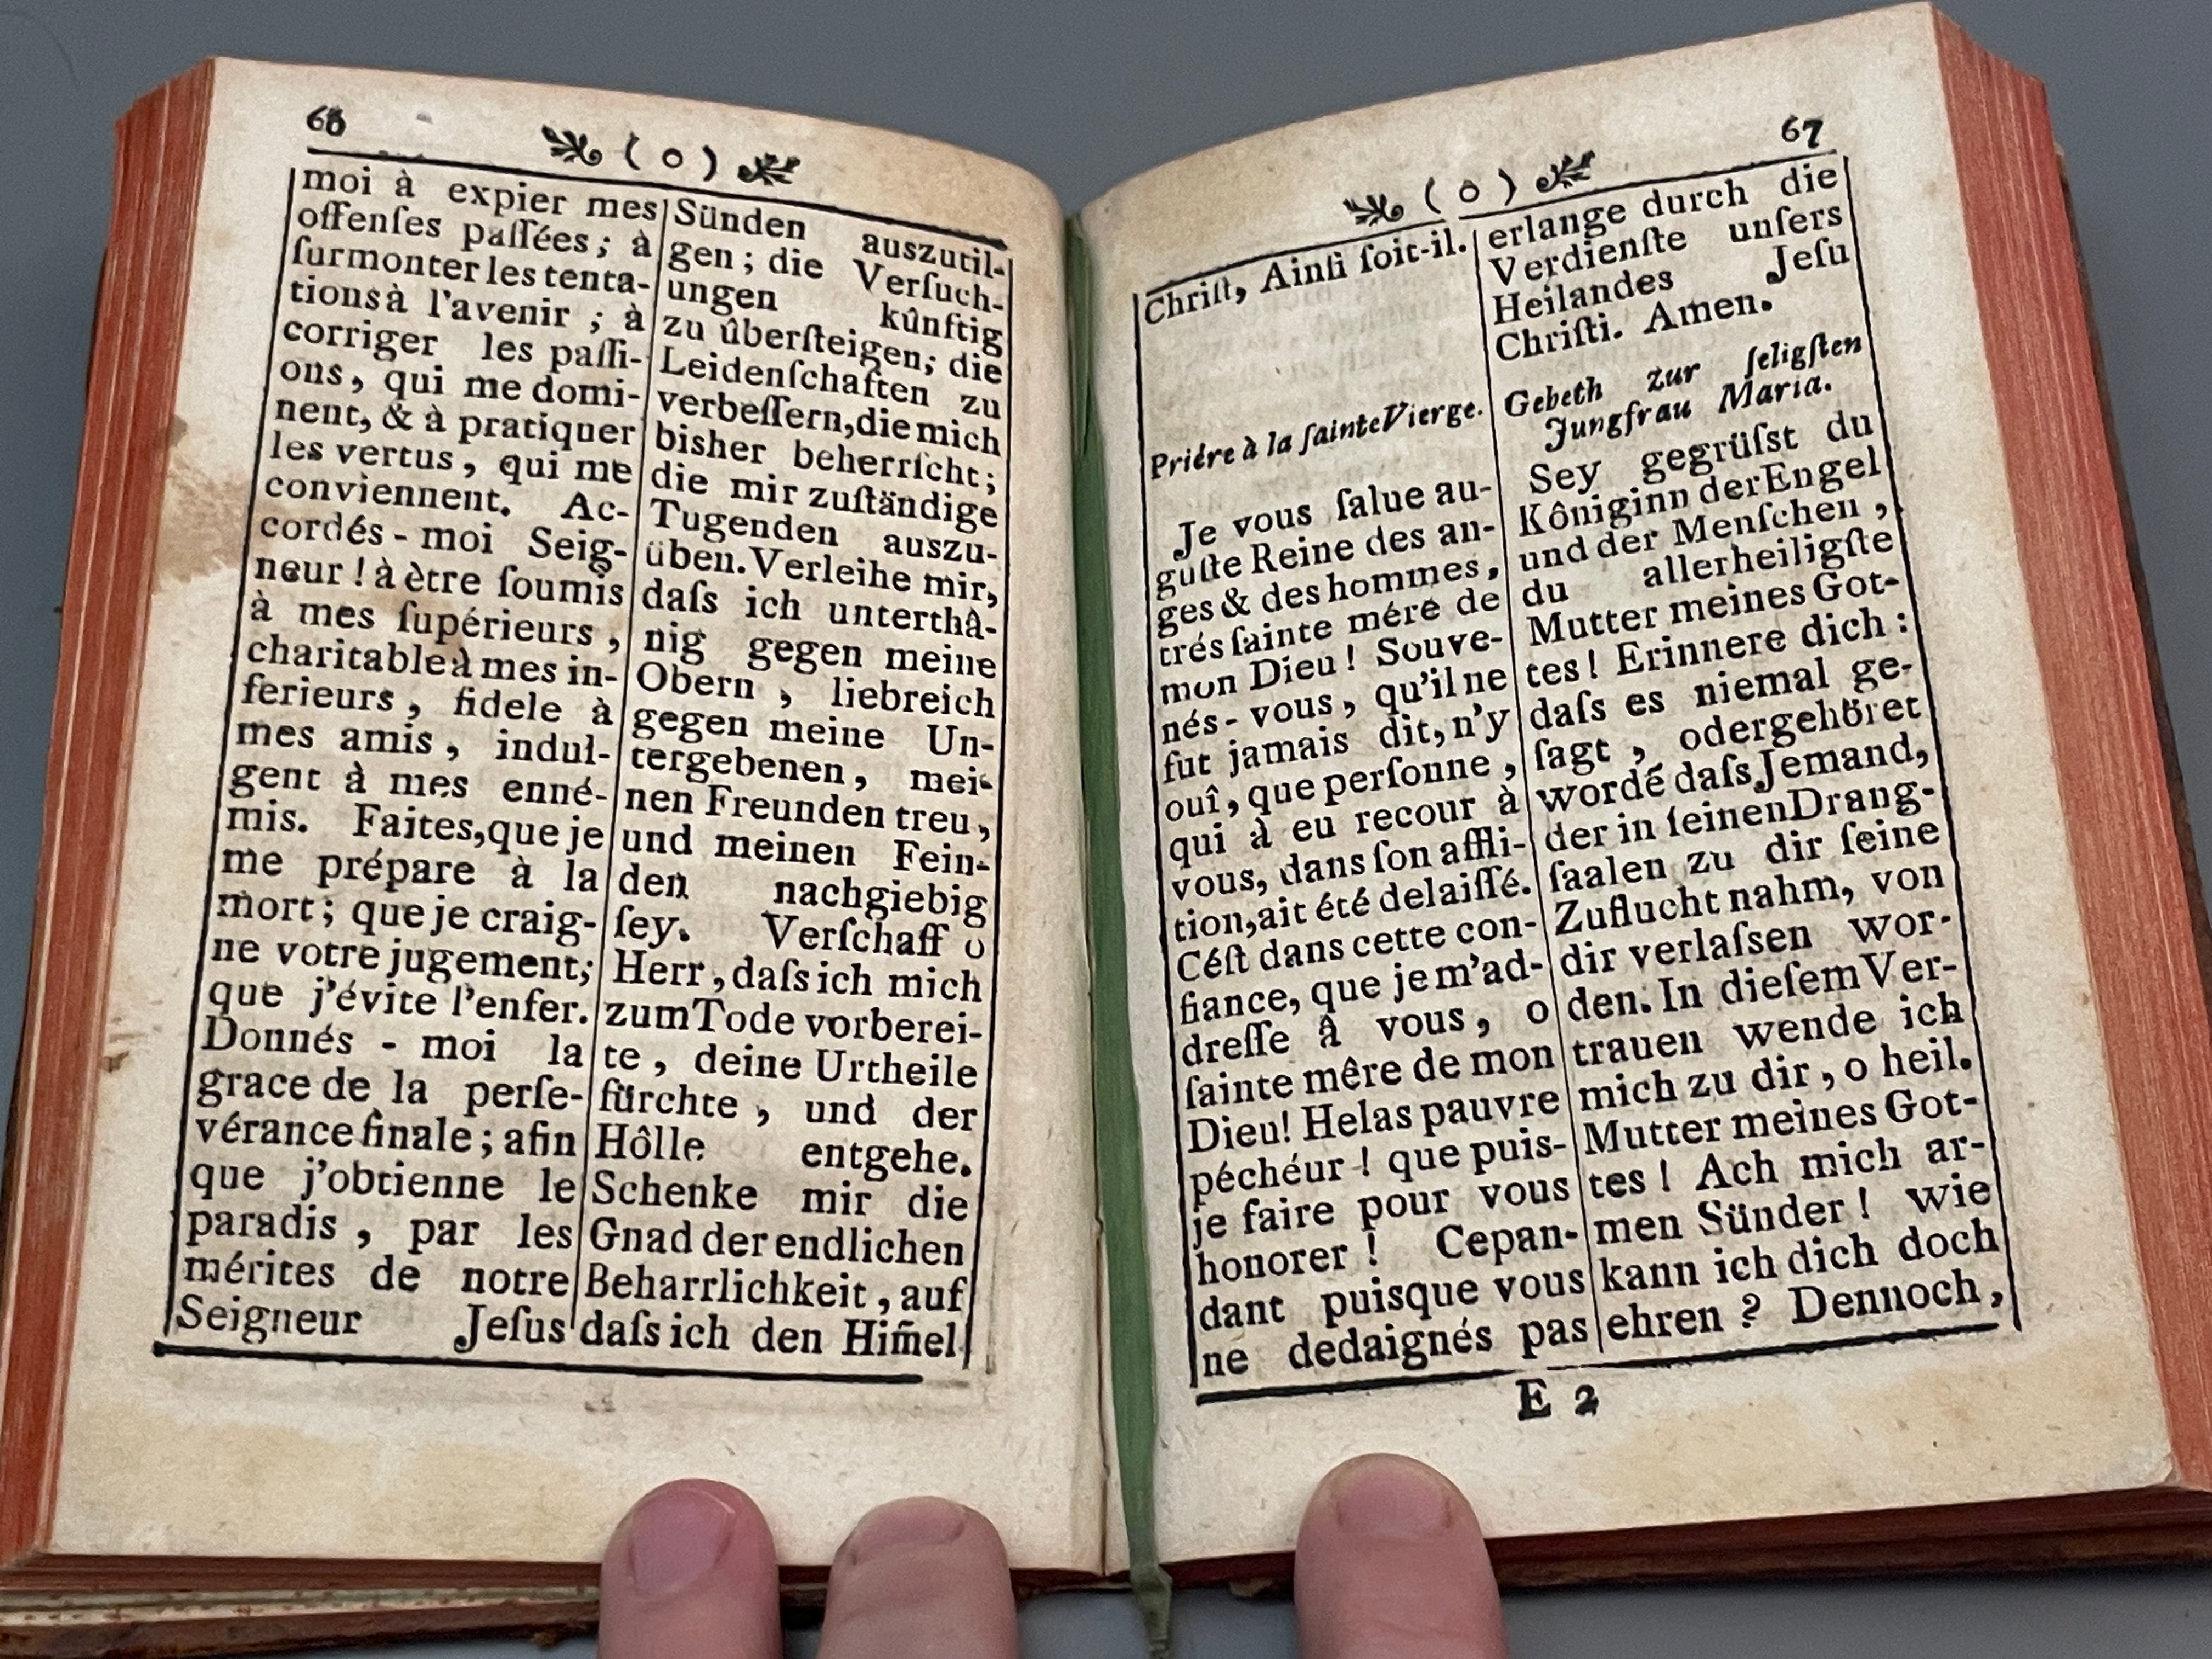 66
( o )
moi à expier mes
offenſes paſſées; à
ſurmonter les tenta-
tions à l'avenir ; à
corriger les paſſi-
ons, qui me domi-
nent, & à pratiquer
les vertus, qui me
conviennent. Ac-
cordés - moi Seig-
neur ! à ètre ſoumis
à mes ſupérieurs,
charitable à mes in-
ferieurs, fidele à
mes amis, indul-
gent à mes enné-
mis. Faites, que je
me prépare à la
mort; que je craig-
ne votre jugement;
que j'évite l'enfer.
Donnés - moi la
grace de la perſe-
vérance finale; afin
que j'obtienne le
paradis, par les
mérites de notre
Seigneur Jeſus
Sünden auszutil-
gen; die Verſuch-
ungen kûnftig
zu ûberſteigen; die
Leidenſchaften zu
verbeſſern, die mich
bisher beherrſcht;
die mir zuſtändige
Tugenden auszu-
üben. Verleihe mir,
daſs ich unterthâ-
nig gegen meine
Obern, liebreich
gegen meine Un-
tergebenen, mei-
nen Freunden treu,
und meinen Fein-
den nachgiebig
ſey. Verſchaff o
Herr, daſs ich mich
zum Tode vorberei-
te, deine Urtheile
fürchte, und der
Hôlle entgehe.
Schenke mir die
Gnad der endlichen
Beharrlichkeit, auf
daſs ich den Him̃el
67
( ô )
Chriſt, Ainſi ſoit-il.
Priére à la ſainte Vierge.
Je vous ſalue au-
guſte Reine des an-
ges & des hommes,
trés ſainte mére de
mon Dieu ! Souve-
nés - vous, qu'il ne
fut jamais dit, n'y
ouî, que perſonne,
qui à eu recour à
vous, dans ſon affli-
tion, ait été delaiſſé.
Céſt dans cette con-
fiance, que je m'ad-
dreſſe â vous, o
ſainte mêre de mon
Dieu! Helas pauvre
péchéur ! que puis-
je faire pour vous
honorer ! Cepan-
dant puisque vous
ne dedaignés pas
erlange durch die
Verdienſte unſers
Heilandes Jeſu
Chriſti. Amen.
Gebeth zur ſeligſten
Jungfrau Maria.
Sey gegrüſst du
Kôniginn der Engel
und der Menſchen,
du allerheiligſte
Mutter meines Got-
tes! Erinnere dich :
daſs es niemal ge-
ſagt, oder gehöret
wordé daſs Jemand,
der in ſeinen Drang-
ſaalen zu dir ſeine
Zuflucht nahm, von
dir verlaſsen wor-
den. In dieſem Ver-
trauen wende ich
mich zu dir, o heil.
Mutter meines Got-
tes ! Ach mich ar-
men Sünder ! wie
kann ich dich doch
ehren ? Dennoch,
E 2